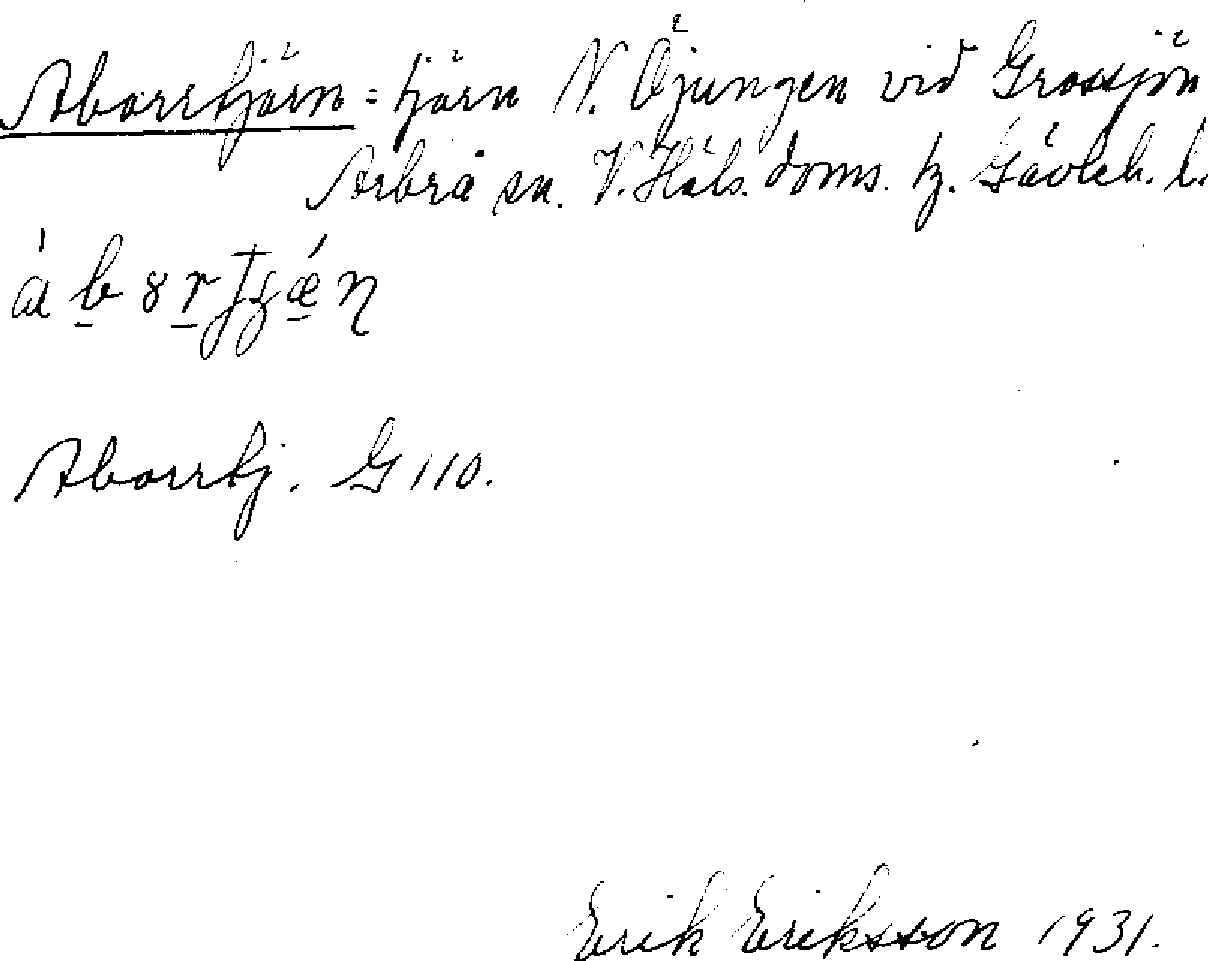 Aborrtjärn = tjärn N. Öjungen vid Grossjön
Arbrå sn. V. Häls. doms. tz. Gävleb. l.
Aborrtj. G 110.
Erik Eriksson 1931.